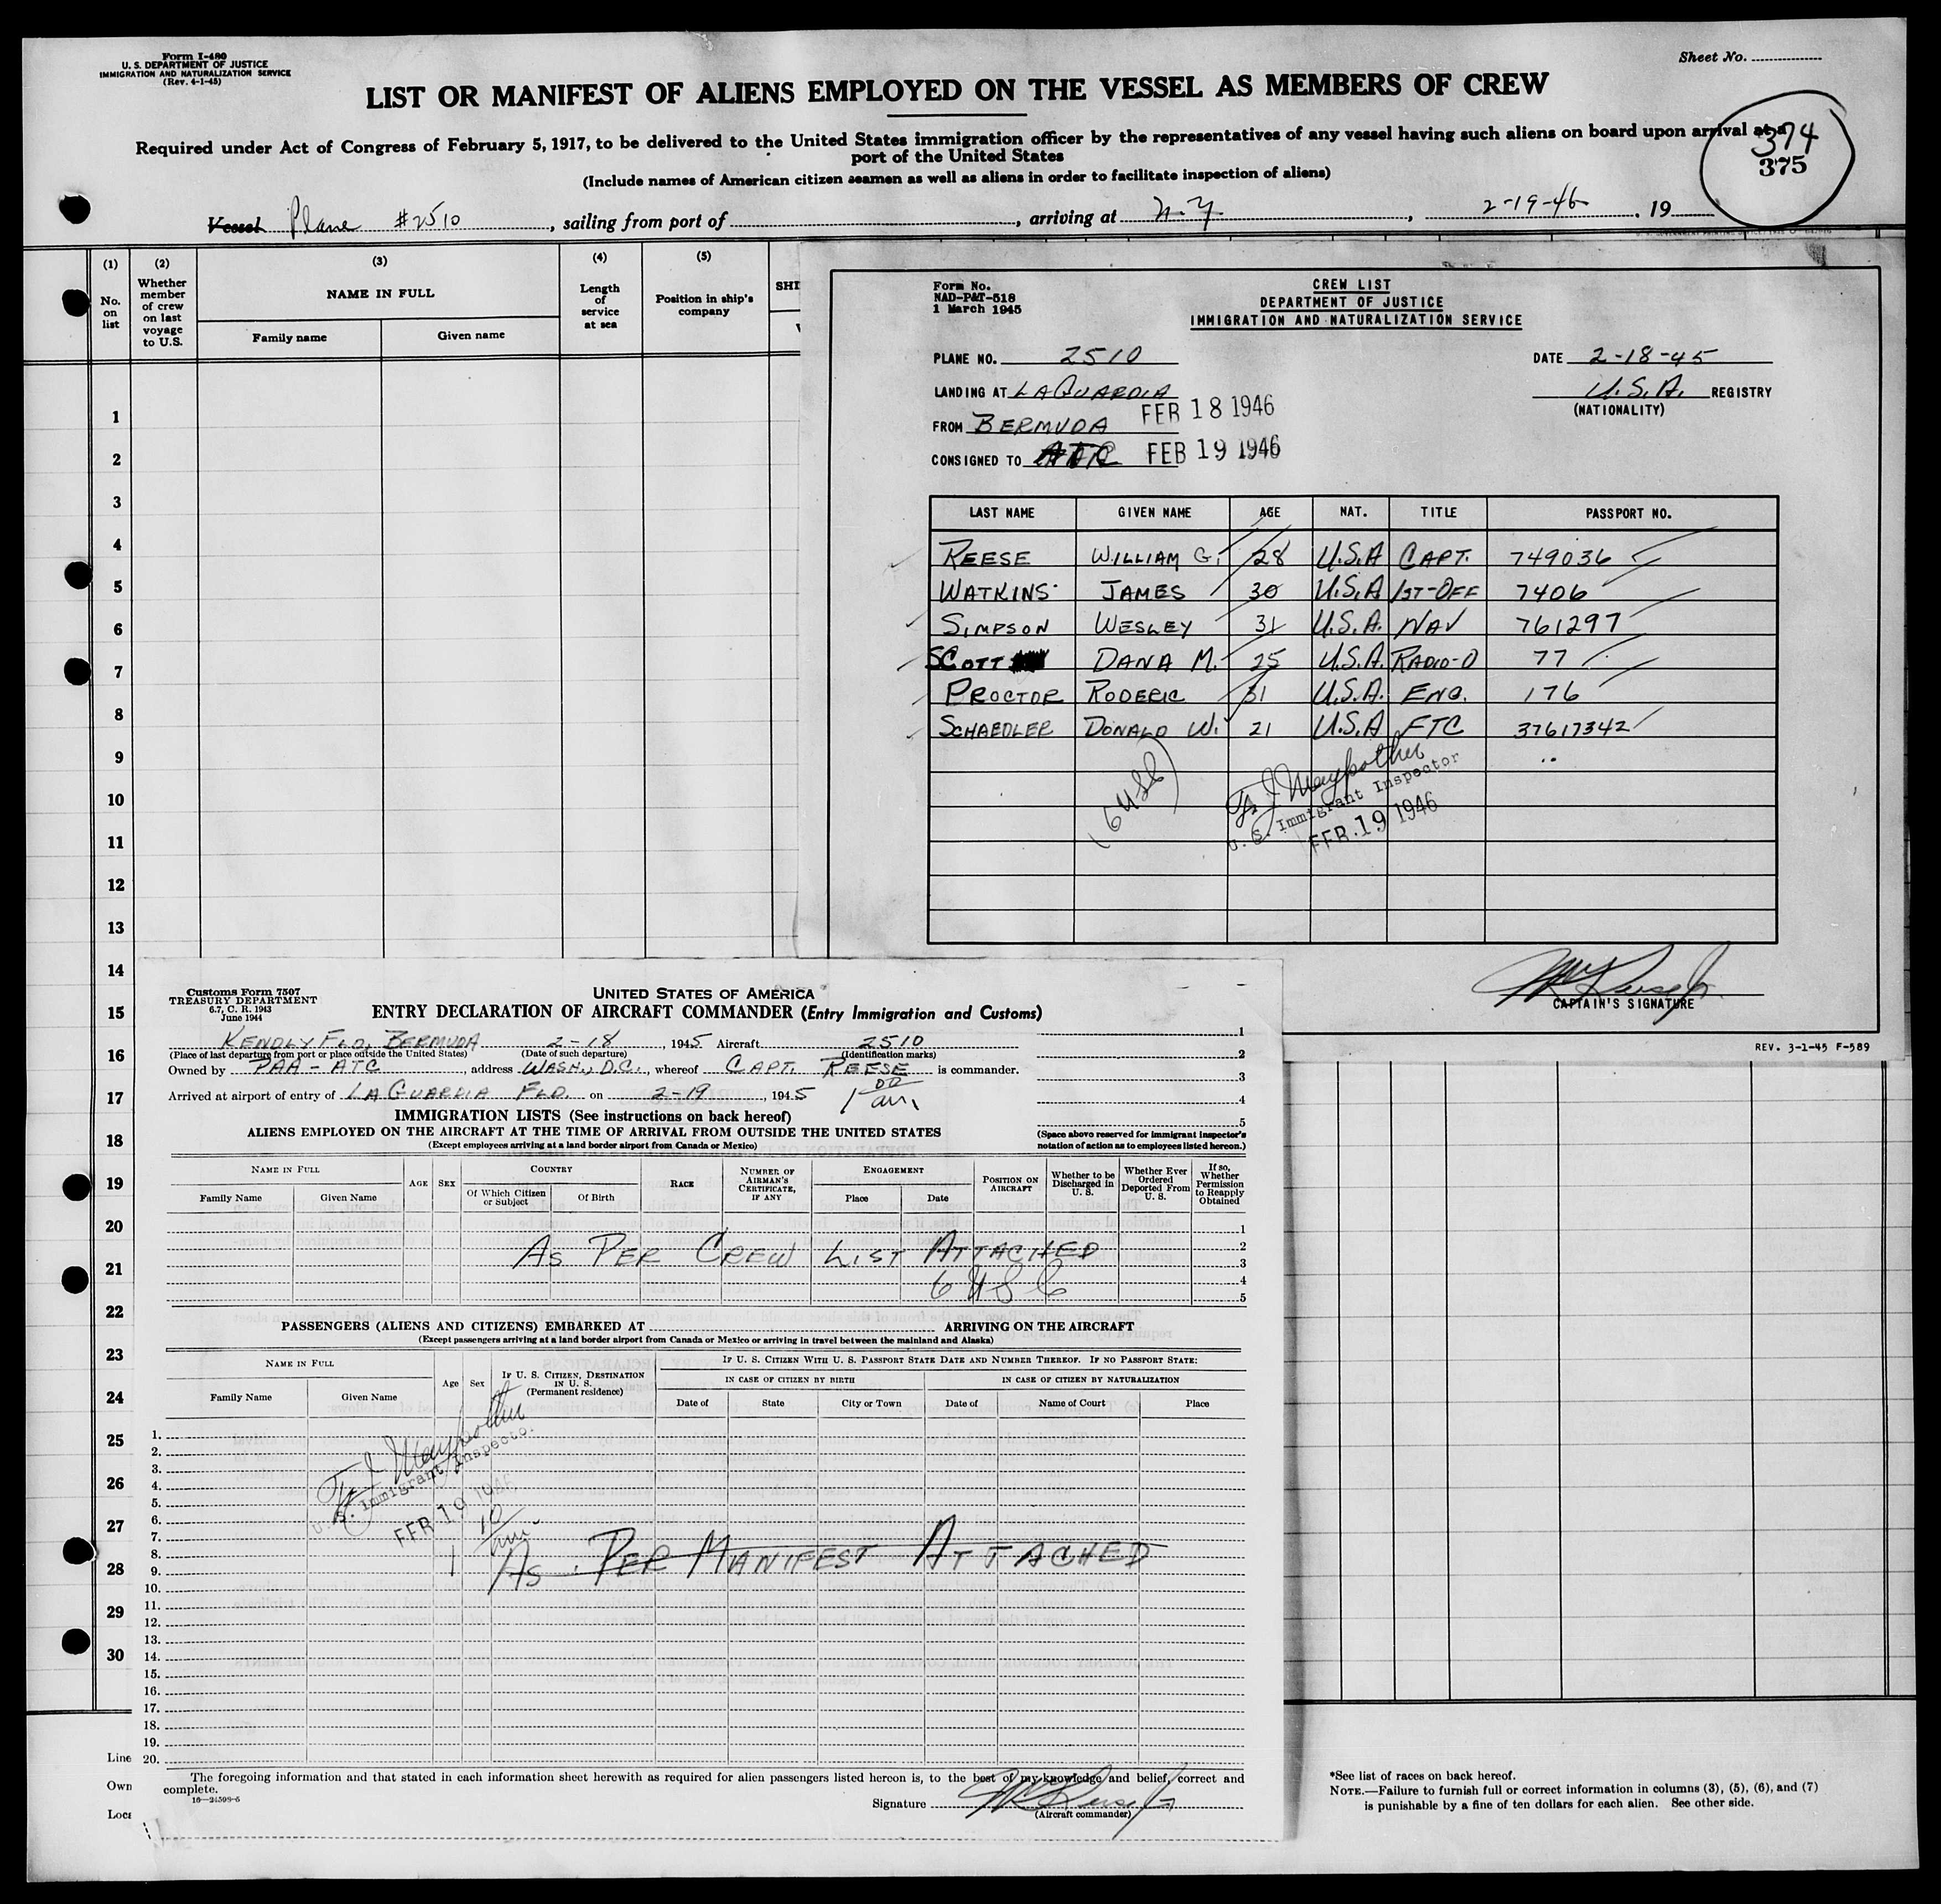 Form I-480
U. S. DEPARTMENT OF JUSTICE
IMMIGRATION AND NATURALIZATION SERVICE
(Rev. 4-1-45)
Sheet No.
LIST OR MANIFEST OF ALIENS EMPLOYED ON THE VESSEL AS MEMBERS OF CREW
Required under Act of Congress of February 5, 1917, to be delivered to the United States immigration officer by the representatives of any vessel having such aliens on board upon arrival at a
port of the United States
374
375
(Include names of American citizen seamen as well as aliens in order to facilitate inspection of aliens)
Vessel Plane #2510, sailing from port of , arriving at N.Y. , 2-19-46 , 19
(1) (2) (3) (4) (5)
No. on list
Whether member of crew on last voyage to U.S.
NAME IN FULL
Family name Given name
Length of service at sea
Position in ship's company
SHI
1
2
3
4
5
6
7
8
9
10
11
12
13
14
15
16
17
18
19
20
21
22
23
24
25
26
27
28
29
30
Line
Own
Loca
Form No.
NAD-P&T-518
1 March 1945
CREW LIST
DEPARTMENT OF JUSTICE
IMMIGRATION AND NATURALIZATION SERVICE
PLANE NO. 2510
DATE 2-18-45
LANDING AT LAGUARDIA
U.S.A. REGISTRY
(NATIONALITY)
FEB 18 1946
FROM BERMUDA
CONSIGNED TO ATC FEB 19 1946
LAST NAME GIVEN NAME AGE NAT. TITLE PASSPORT NO.
REESE WILLIAM G. 28 U.S.A CAPT. 749036
WATKINS JAMES 30 U.S.A 1ST-OFF 7406
SIMPSON WESLEY 31 U.S.A. NAV 761297
SCOTT DANA M. 25 U.S.A. RADIO-O 77
PROCTOR RODERIC 31 U.S.A. ENG. 176
SCHAEDLER DONALD W. 21 U.S.A FTC 37617342
(6 USC)
U. S. Immigrant Inspector
FEB 19 1946
CAPTAIN'S SIGNATURE
REV. 3-1-45 F-589
Customs Form 7507
TREASURY DEPARTMENT
6.7, C. R. 1943
June 1944
UNITED STATES OF AMERICA
ENTRY DECLARATION OF AIRCRAFT COMMANDER (Entry Immigration and Customs)
KENDLY FLD, BERMUDA 2-18, 1945 Aircraft 2510
(Place of last departure from port or place outside the United States) (Date of such departure) (Identification marks)
Owned by PAA-ATC, address WASH., D.C., whereof CAPT. REESE is commander.
Arrived at airport of entry of LAGUARDIA FLD. on 2-19, 1945 1 00 am
1
2
3
4
5
IMMIGRATION LISTS (See instructions on back hereof)
ALIENS EMPLOYED ON THE AIRCRAFT AT THE TIME OF ARRIVAL FROM OUTSIDE THE UNITED STATES
(Except employees arriving at a land border airport from Canada or Mexico)
(Space above reserved for immigrant inspector's
notation of action as to employees listed hereon.)
NAME IN FULL
Family Name Given Name
AGE SEX
COUNTRY
Of Which Citizen or Subject Of Birth
RACE
NUMBER OF AIRMAN'S CERTIFICATE, IF ANY
ENGAGEMENT
Place Date
POSITION ON AIRCRAFT
Whether to be Discharged in U. S.
Whether Ever Ordered Deported From U. S.
If so, Whether Permission to Reapply Obtained
1
2
3
4
5
AS PER CREW LIST ATTACHED
6 USC
PASSENGERS (ALIENS AND CITIZENS) EMBARKED AT ARRIVING ON THE AIRCRAFT
(Except passengers arriving at a land border airport from Canada or Mexico or arriving in travel between the mainland and Alaska)
NAME IN FULL
Family Name Given Name
Age Sex
IF U. S. CITIZEN, DESTINATION IN U. S.
(Permanent residence)
IF U. S. CITIZEN WITH U. S. PASSPORT STATE DATE AND NUMBER THEREOF. IF NO PASSPORT STATE:
IN CASE OF CITIZEN BY BIRTH IN CASE OF CITIZEN BY NATURALIZATION
Date of State City or Town Date of Name of Court Place
1.
2.
3.
4.
5.
6.
7.
8.
9.
10.
11.
12.
13.
14.
15.
16.
17.
18.
19.
20.
U. S. Immigrant Inspector
FEB 19 1946
1 10 am
AS PER MANIFEST ATTACHED
The foregoing information and that stated in each information sheet herewith as required for alien passengers listed hereon is, to the best of my knowledge and belief, correct and
complete.
16—24598-6
Signature
(Aircraft commander)
*See list of races on back hereof.
NOTE.—Failure to furnish full or correct information in columns (3), (5), (6), and (7)
is punishable by a fine of ten dollars for each alien. See other side.